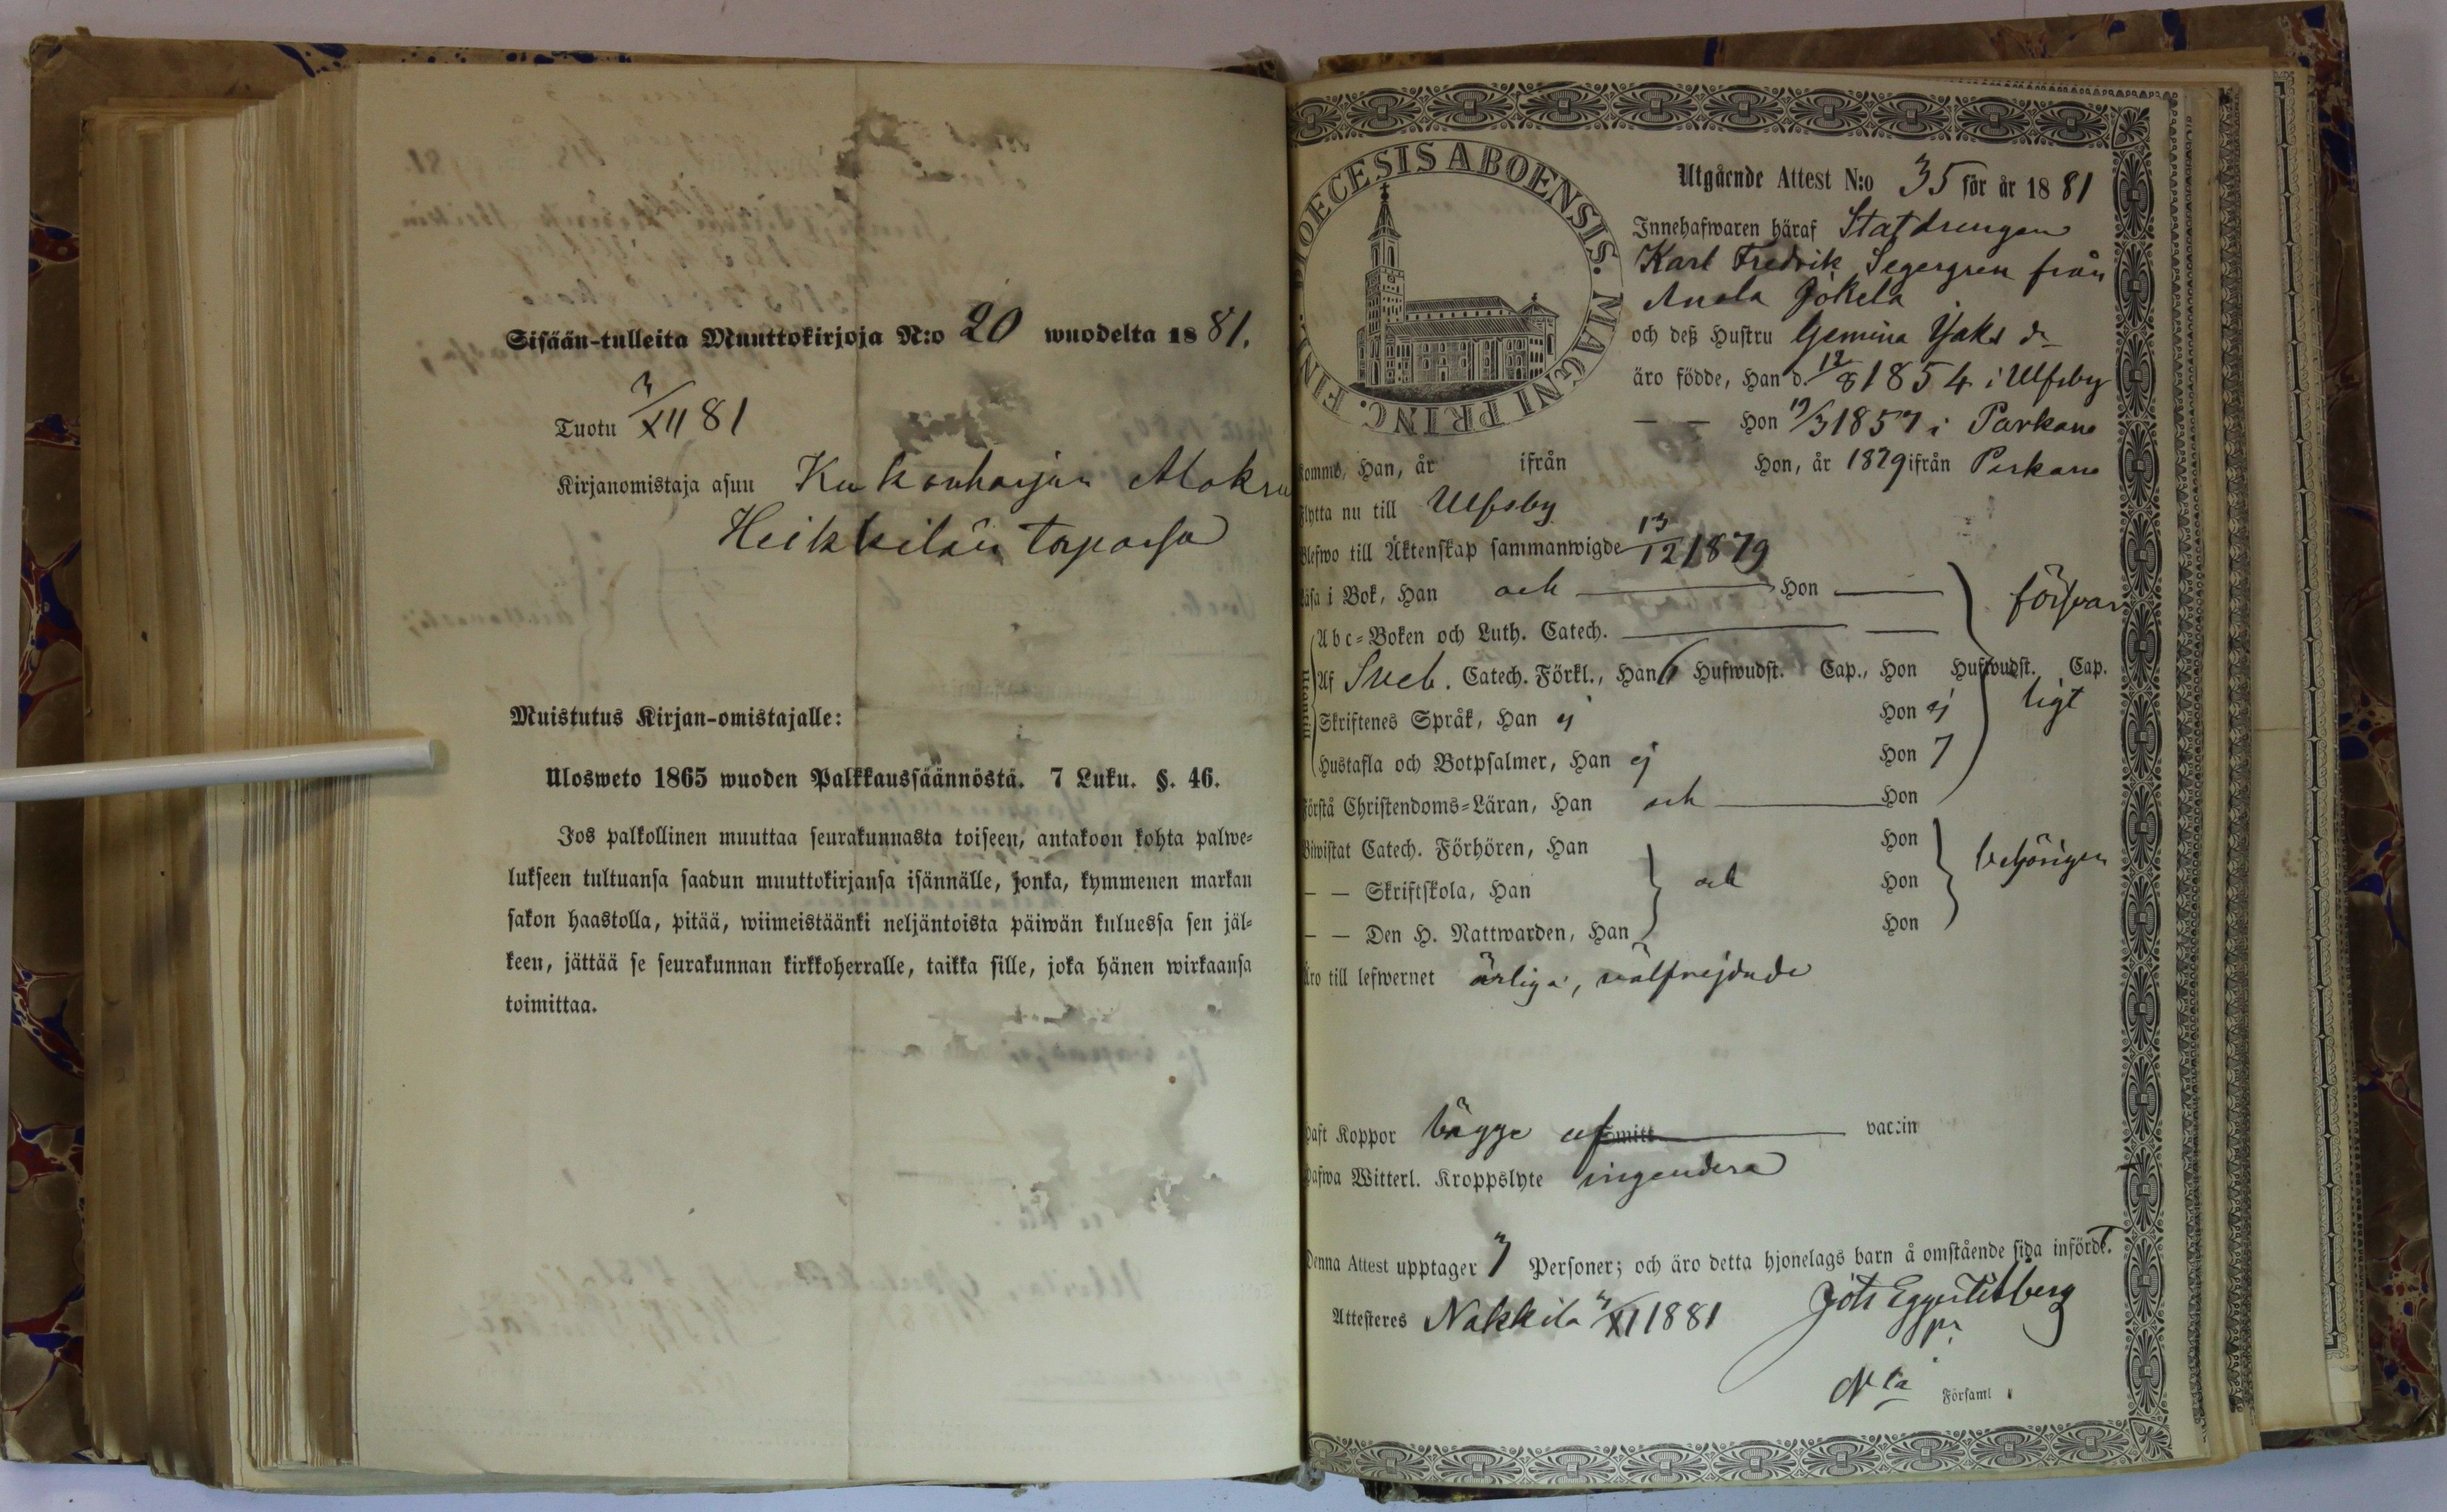 Sisään-tulleita Muuttokirjoja N:o 20 wuodelta 1881.
Tuotu 3/XII 81
Kirjanomistaja asuu Kukonharjun
Heikkilän torpassa
Muistutus Kirjan-omistajalle:
Ulosweto 1865 wuoden Palkkaussäännöstä. 7 Luku. §. 46.
Jos palkollinen muuttaa seurakunnasta toiseen, antakoon kohta palwe-
lukseen tultuansa saadun muuttokirjansa isännälle, jonka, kymmenen markan
sakon haastolla, pitää, wiimeistäänki neljäntoista päiwän kuluessa sen jäl-
keen, jättää se seurakunnan kirkkoherralle, taikka sille, joka hänen wirkaansa
toimittaa.
DIOECESIS ABOENSIS. MAGNI PRINC. FINL.
Utgående Attest N:o 35 för år 1881
Innehafwaren häraf Statdrengen
Karl Fredrik Segergren från
Anola Jokela
och deß Hustru Gemina Jaks dr
äro födde, Han d. 12/8 1854 i Ulfsby
— — Hon 1857 i Parkano
komme, Han, år ifrån Hon, år 1879 ifrån Parkano
Flytta nu till Ulfsby
Blefwo till Äktenskap sammanwigde 13/12 1879
Läsa i Bok, Han och — Hon — försvar
Abc-Boken och Luth. Catech. — —
Af Sveb. Catech. Förkl., Han 6 Hufwudst. Cap., Hon Hufwudst. Cap.
ligt
Skriftenes Språk, Han ej Hon ej
Hustafla och Botpsalmer, Han ej Hon 7
Förstå Christendoms-Läran, Han och — Hon
Biwistat Catech. Förhören, Han Hon
— — Skriftskola, Han och Hon behörigen
— — Den H. Nattwarden, Han Hon
Äro till lefwernet ärliga, välfrejdade
Haft Koppor bägge af vaccin
Hafwa Witterl. Kroppslyte ingendera
Denna Attest upptager Personer; och äro detta hjonelags barn å omstående sida införde.
Attesteres Nakkila 3/XI 1881
Församl